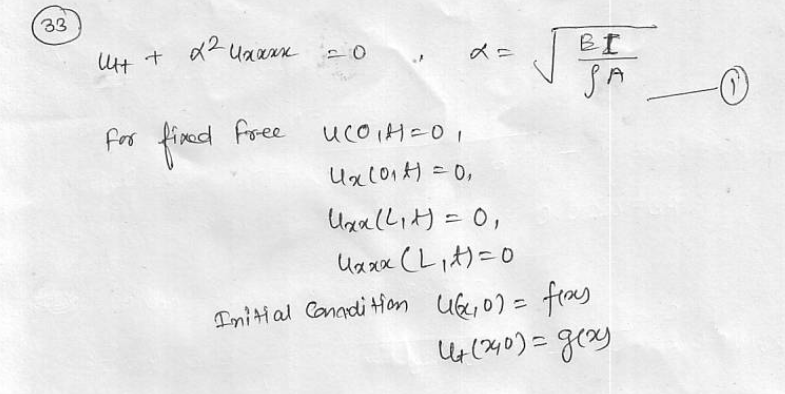 33
u_tt + α² u_xxxx = 0 , α = √(EI / ρA) —— ①
For fixed free u(0,t)=0,
u_x(0,t) = 0,
u_xx(L,t) = 0,
u_xxx(L,t)=0
Initial Conadition u(x,0) = f(x)
u_t(x,0) = g(x)